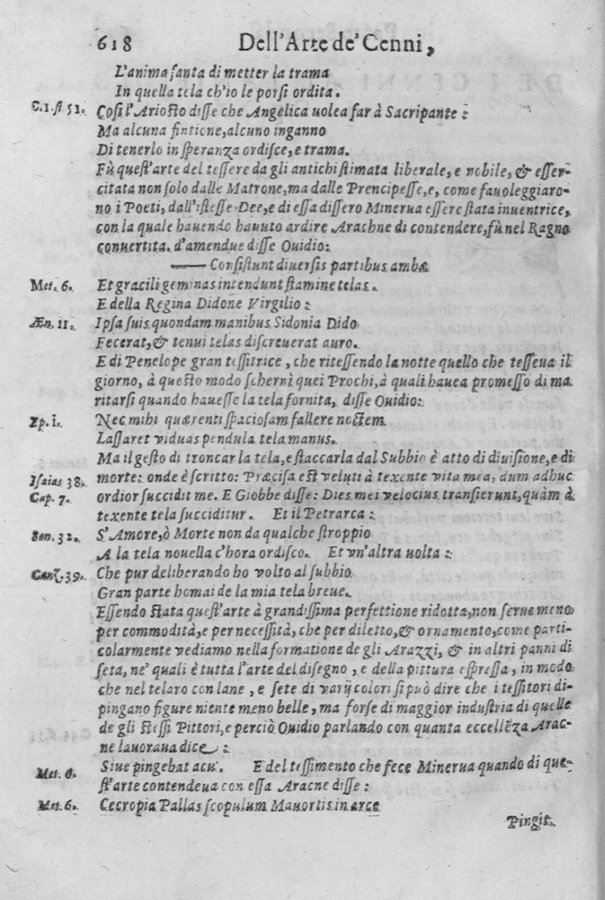 618 Dell'Arte de' Cenni,
L'anima santa di metter la trama
In quella tela ch'io le porsi ordita.
C.1.st.51. Così l'Ariosto disse che Angelica uolea far à Sacripante:
Ma alcuna fintione, alcuno inganno
Di tenerlo in speranza ordisce, e trama.
Fù quest'arte del tessere da gli antichi stimata liberale, e nobile, & esser-
citata non solo dalle Matrone, ma dalle Prencipesse, e, come fauoleggiaro-
no i Poeti, dall'istesse Dee, e di essa dissero Minerua essere stata inuentrice,
con la quale hauendo hauuto ardire Arachne di contendere, fù nel Ragno
conuertita. d'amendue disse Ouidio:
—— Consistunt diuersis partibus ambæ
Met. 6. Et gracili geminas intendunt stamine telas.
E della Regina Didone Virgilio:
Æn. 11. Ipsa suis quondam manibus Sidonia Dido
Fecerat, & tenui telas discreuerat auro.
E di Penelope gran tessitrice, che ritessendo la notte quello che tesseua il
giorno, à questo modo schernì quei Prochi, à quali hauea promesso di ma
ritarsi quando hauesse la tela fornita, disse Ouidio:
Ep. i. Nec mihi quærenti spaciosam fallere noctem
Lassaret viduas pendula tela manus.
Ma il gesto di troncar la tela, e staccarla dal Subbio è atto di diuisione, e di
Isaiæ 38. morte: onde è scritto: Præcisa est veluti à texente vita mea, dum adhuc
Cap. 7. ordior succidit me. E Giobbe disse: Dies mei velocius transierunt, quàm à
texente tela succiditur. Et il Petrarca:
Son. 32. S'Amore, ò Morte non da qualche stroppio
A la tela nouella c'hora ordisco. Et vn'altra uolta:
Canz. 39. Che pur deliberando ho volto al subbio
Gran parte homai de la mia tela breue.
Essendo stata quest'arte à grandissima perfettione ridotta, non serue meno
per commodità, e per necessità, che per diletto, & ornamento, come parti-
colarmente vediamo nella formatione de gli Arazzi, & in altri panni di
seta, ne' quali è tutta l'arte del disegno, e della pittura espressa, in modo
che nel telaro con lane, e sete di varij colori si può dire che i tessitori di-
pingano figure niente meno belle, ma forse di maggior industria di quelle
de gli stessi Pittori, e perciò Ouidio parlando con quanta eccellẽza Arac-
ne lauoraua dice:
Met. 6. Siue pingebat acu. E del tessimento che fece Minerua quando di que-
st'arte contendeua con essa Aracne disse:
Met. 6. Cecropia Pallas scopulum Mauortis in arce
Pingit.